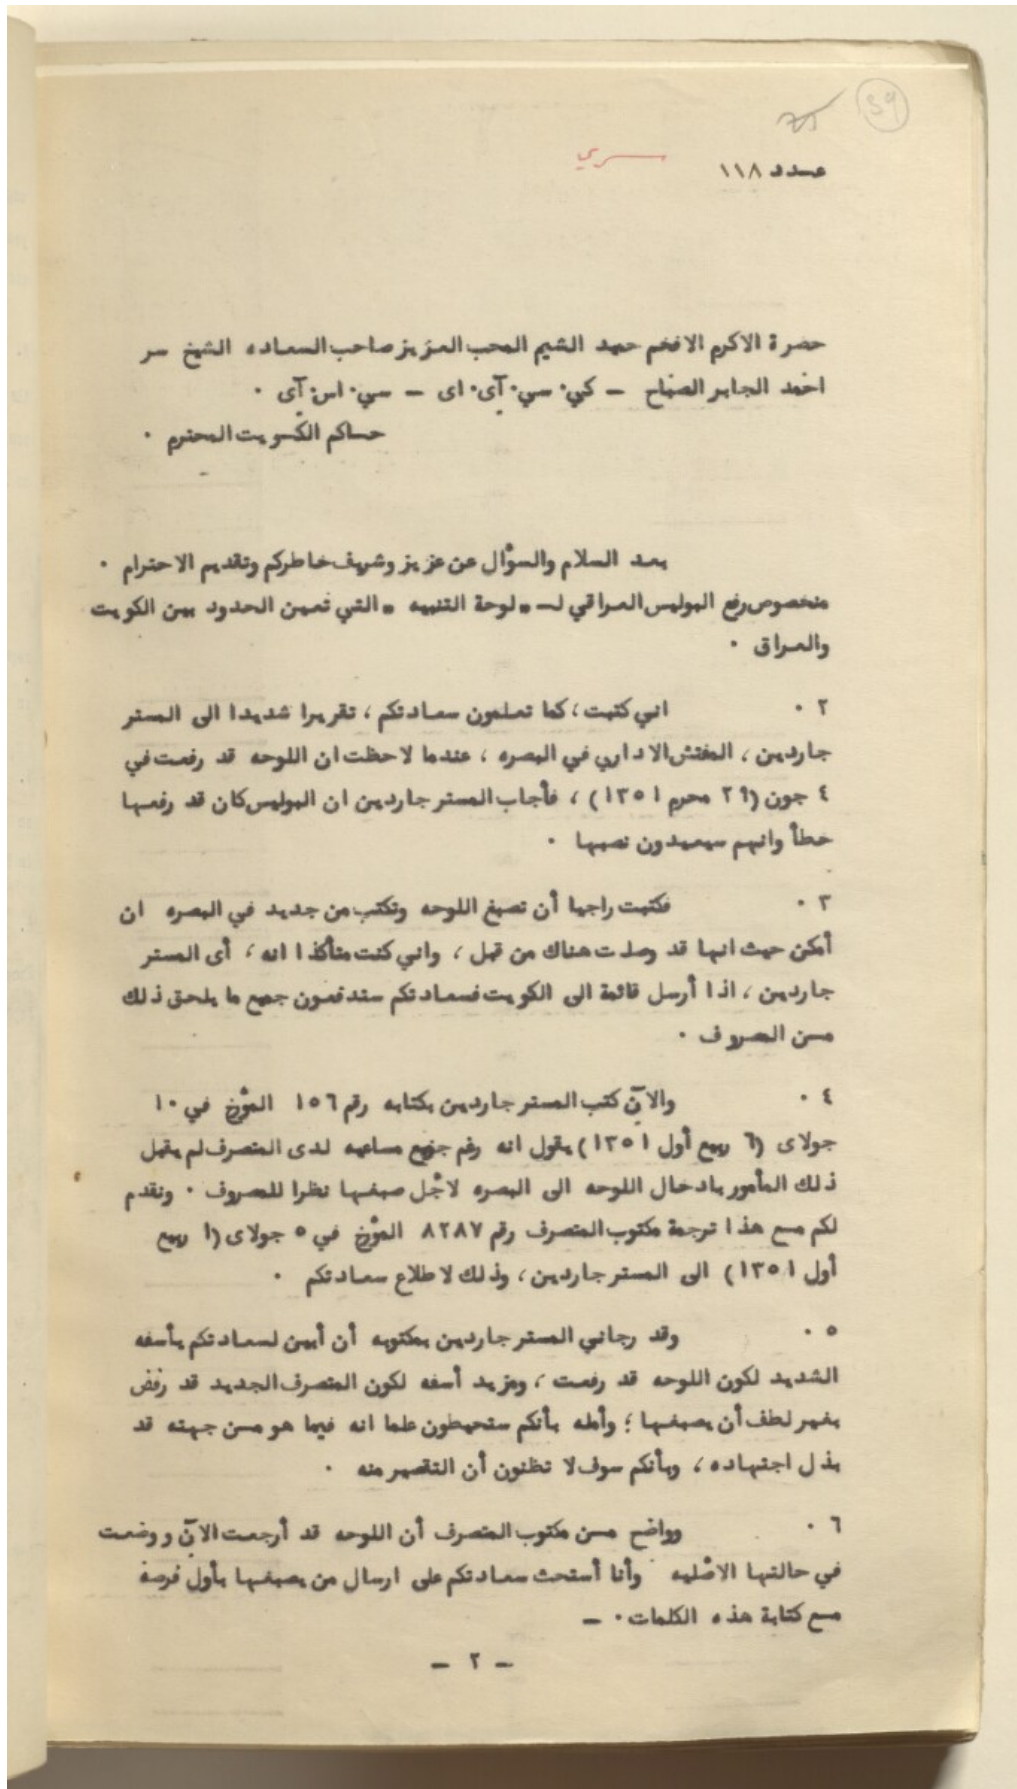 39
سري
عدد ١١٨
حضرة الاكرم الافخم حميد الشيم المحب العزيز صاحب السعاده الشيخ سر
احمد الجابر الصباح – كي٠ سي٠ آى٠ اى – سي٠ اس٠ آى ٠
حاكم الكويت المحترم ٠
بعد السلام والسوٴال عن عزيز وشريف خاطركم وتقديم الاحترام ٠
منخصوص رفع البوليس العراقي لـ "لوحة التنبيه" التي تعين الحدود بين الكويت
والعراق ٠
٢ ٠ اني كتبت، كما تعلمون سعادتكم، تقريرا شديدا الى المستر
جاردين، المفتش الاداري في البصره، عندما لاحظت ان اللوحه قد رفعت في
٤ جون (٢٩ محرم ١٣٥١)، فأجاب المستر جاردين ان البوليس كان قد رفعها
خطأ وانهم سيعيدون نصبها ٠
٣ ٠ فكتبت راجيا أن تصبغ اللوحه وتكتب من جديد في البصره ان
أمكن حيث انها قد وصلت هناك من قبل، واني كنت متأكذا انه، أى المستر
جاردين، اذا أرسل قائمة الى الكويت فسعادتكم ستدفعون جميع ما يلحق ذلك
من المصروف ٠
٤ ٠ والآن كتب المستر جاردين بكتابه رقم ١٥٦ الموٴرخ في ١٠
جولاى (٦ ربيع أول ١٣٥١) يقول انه رغم جميع مساعيه لدى المتصرف لم يقبل
ذلك المأمور بادخال اللوحه الى البصره لاجٔل صبغها نظرا للمصروف ٠ ونقدم
لكم مع هذا ترجمة مكتوب المتصرف رقم ٨٢٨٧ الموٴرخ في ٥ جولاى (١ ربيع
أول ١٣٥١) الى المستر جاردين، وذلك لاطلاع سعادتكم ٠
٥ ٠ وقد رجاني المستر جاردين بمكتوبه أن أبين لسعادتكم بأسفه
الشديد لكون اللوحه قد رفعت، ومزيد أسفه لكون المتصرف الجديد قد رفض
بغير لطف أن يصبغها؛ وأمله بأنكم ستحيطون علما انه فيما هو من جهته قد
بذل اجتهاده، وبأنكم سوف لا تظنون أن التقصير منه ٠
٦ ٠ وواضح من مكتوب المتصرف أن اللوحه قد أرجعت الآن ووضعت
في حالتها الاصٔليه وأنا أستحث سعادتكم على ارسال من يصبغها بأول فرصة
مع كتابة هذه الكلمات ٠ –
– ٢ –